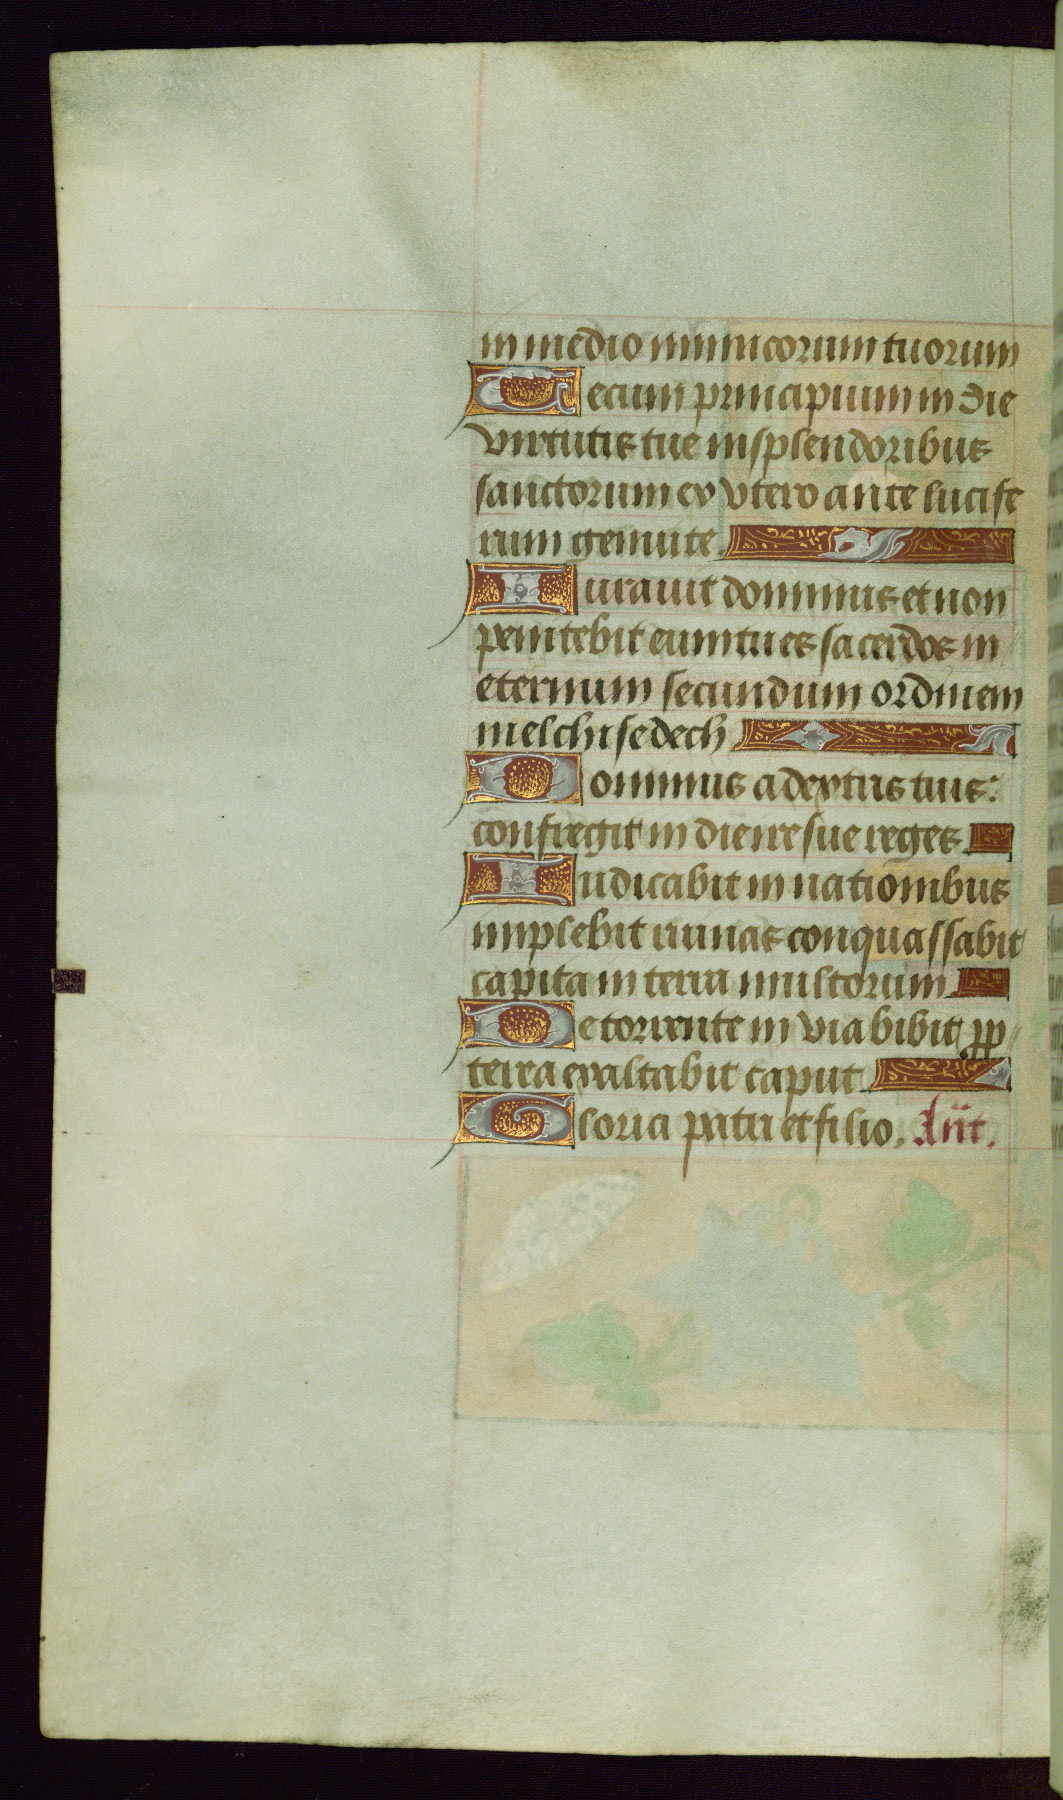 in medio inimicorum tuorum
Tecum principium in die
virtutis tue in splendoribus
sanctorum ex vtero ante lucife
rum genui te.
Iurauit dominus et non
penitebit eum tu es sacerdos in
eternum secundum ordinem
melchisedech
Dominus a dextris tuis:
confregit in die ire sue reges.
Iudicabit in nationibus
implebit ruinas conquassabit
capita in terra multorum.
De torrente in via bibit pp
terea exaltabit caput.
Gloria patri et filio. Ant.